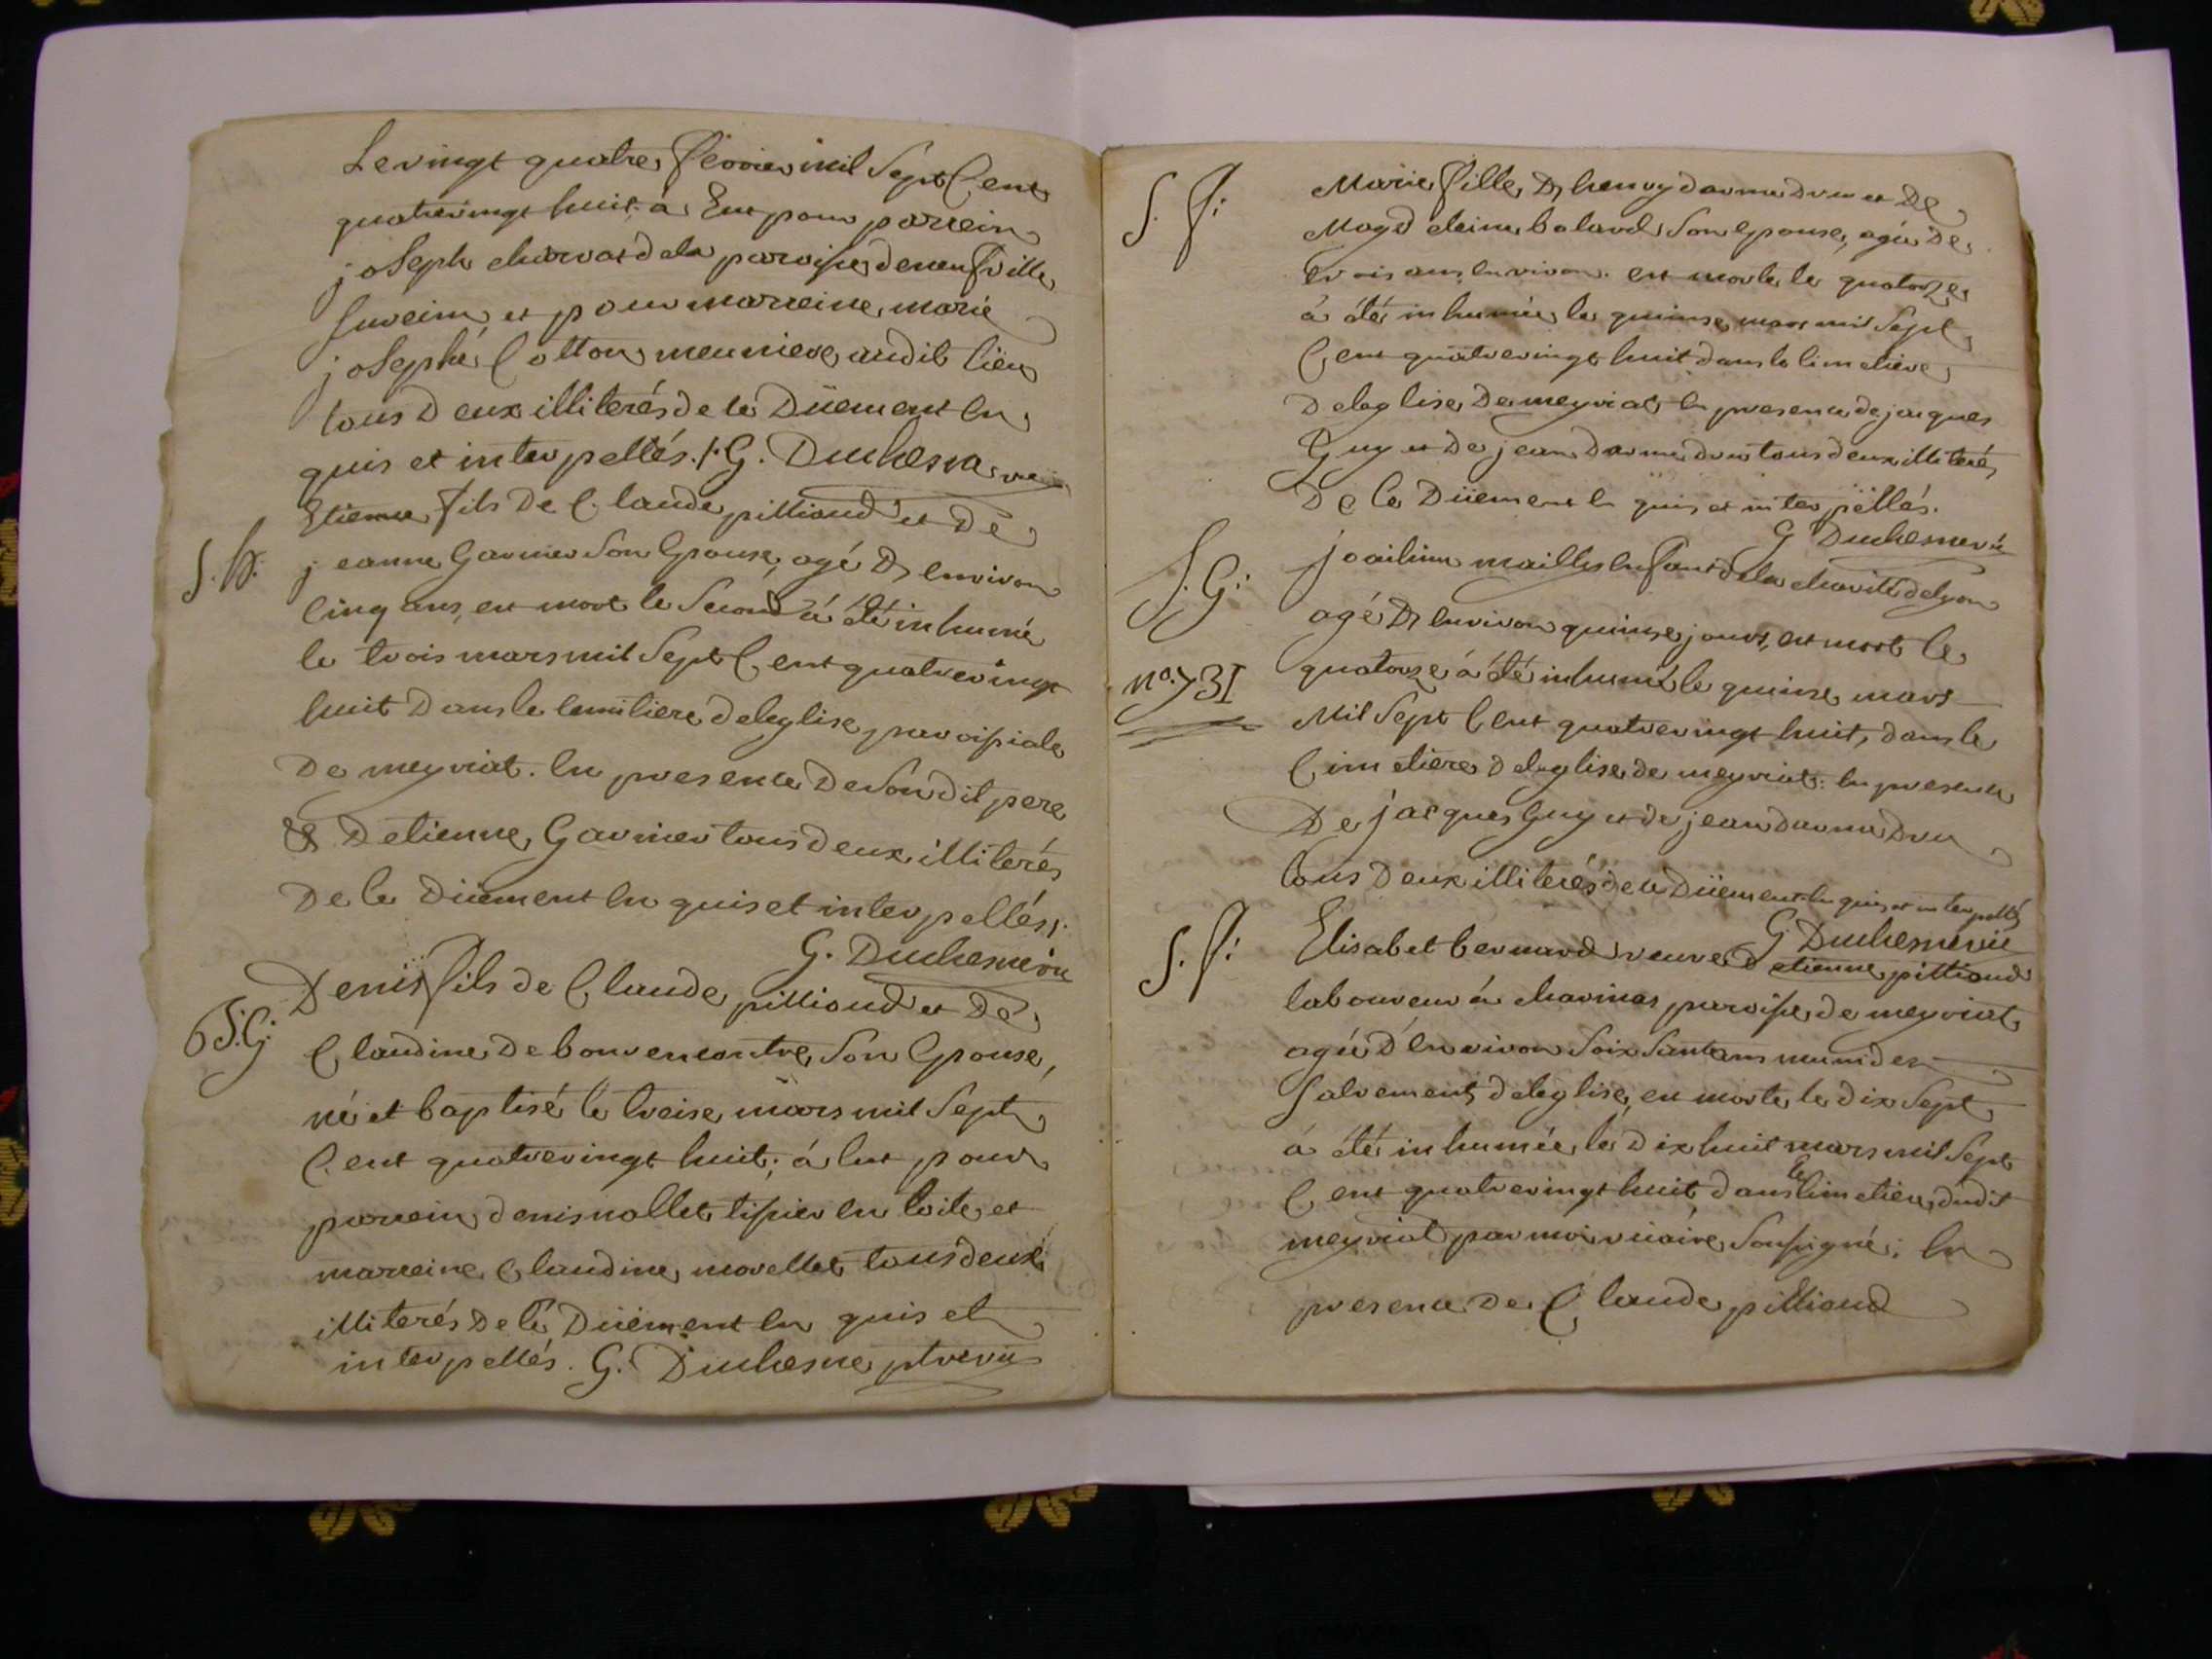 Le vingt quatre fevrier mil Sept Cent
quatrevingt huit; á Eut pour parrein
joSeph charvat de la paroisse de neufville
Sur ein et pour marreine marie
joSephé Cotton meuniere audit lieu
tous Deux illiterés de ce Düement en
quis et interpellés ./. G. Duchesne vic
Etienne fils De Claude pilliand et De
S. G. jeanne Garnier Son Epouse, agé D'environ
Cinq ans, est mort le Second á été inhumé
le trois mars mil Sept Cent quatrevingt
huit Dans le cemitiere de leglise paroissiale
De meyriat. en presence De Son dit pere
& D'etienne Garnier tous deux illiterés
De ce Düement en quis et interpellés ./.
G. Duchesne vic
Denis fils de Claude pilliand et De
B S. G. Claudine De bonrencontre Son Epouse,
né et baptisé le treise mars mil Sept
Cent quatrevingt huit; á Eut pour
parrein denis nallet tissier en toile et
marreine Claudine morellet tous deux
illiterés De ce Düement en quis et
interpellés. G. Duchesne ptre vic
S. f: Marie fille D'henry darmedru et De
Magdeleine balard Son Epouse, agée De
trois ans environ. est morte le quatorze
á été inhumée le quinse mars mil Sept
Cent quatrevingt huit dans le Cimetiere
De leglise De meyriat en presence de jacques
Guy et De jean Darmedru tous deux illiterés
De ce Düement en quis et interpellés.
G Duchesne vic
S. G: joachim mailles enfant de la charité de lyon
agé D'environ quinse jours, est mort le
no. 731 quatorze á été inhumé le quinse mars
Mil Sept Cent quatrevingt huit, dans le
Cimetiere de leglise de meyriat: en presence
De jacques Guy et de jean darmedru
tous Deux illiterés de ce Düement en quis et interpellés
G Duchesne vic
S. f: Elisabet bernard veuve d'etienne pilliand
laboureur á charinas paroisse de meyriat
agée D'environ Soixante ans munie des
Sacrements de leglise, est morte le dix Sept
á été inhumée le Dix huit mars mil Sept
Cent quatrevingt huit dans le Cimetiere dudit
meyriat par moi vicaire Soussigné; en
presence De Claude pilliand